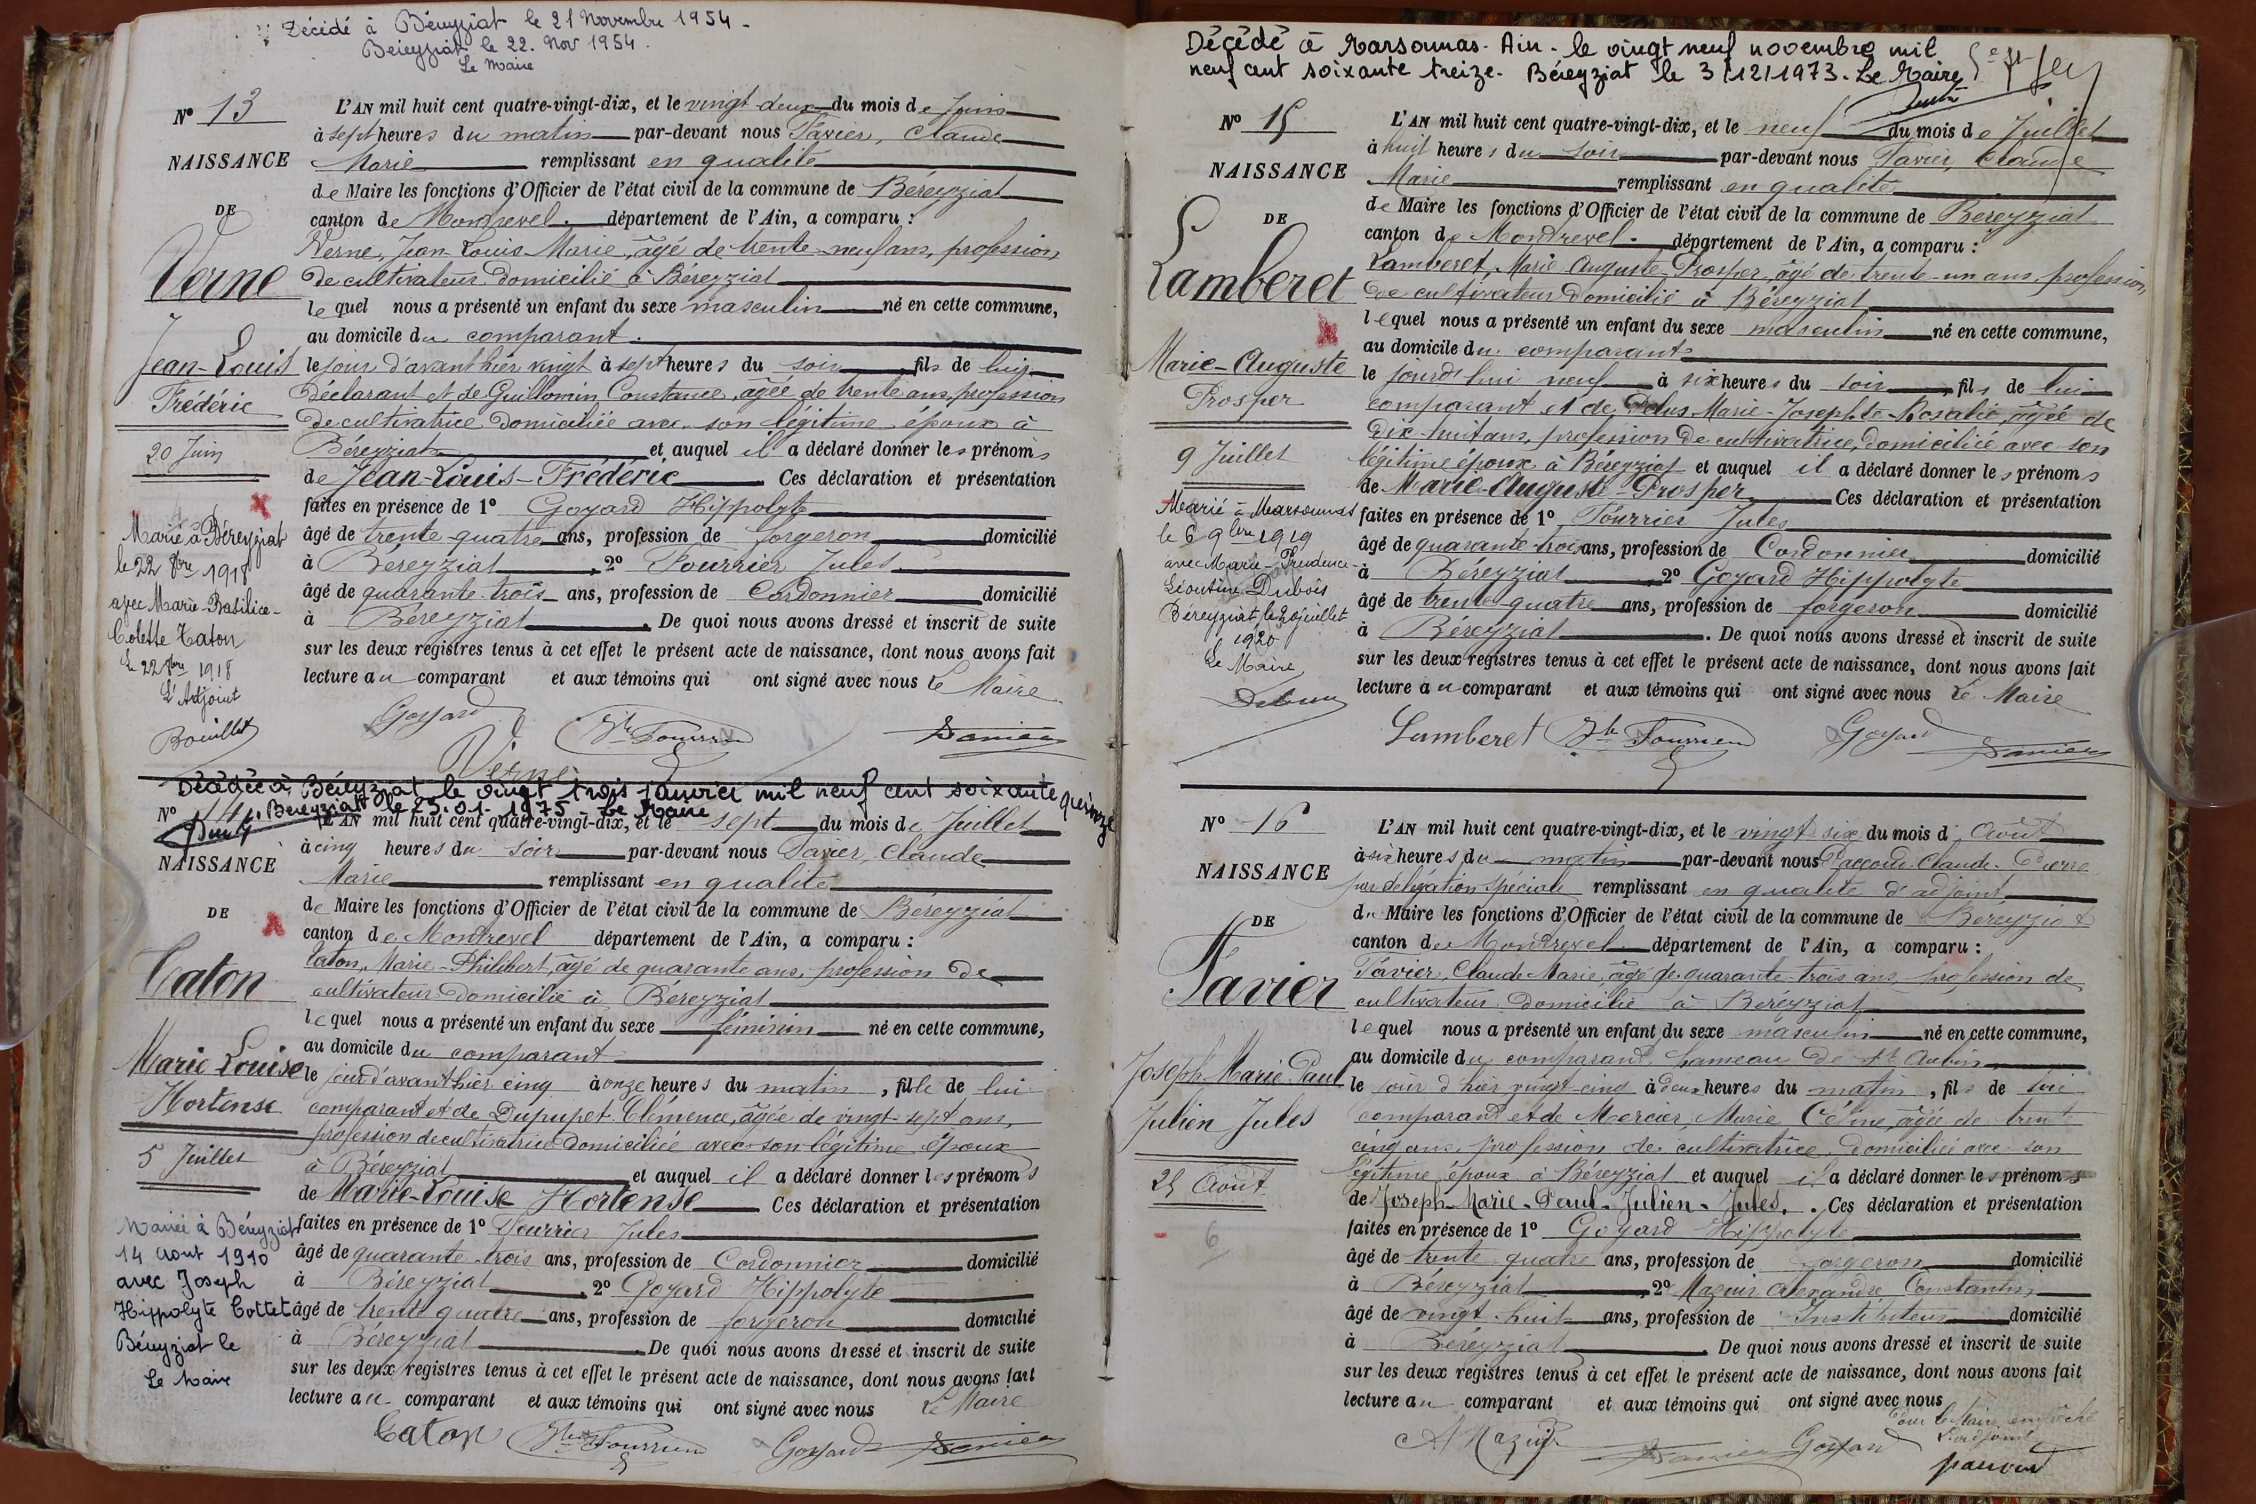 Décédé à Béreyziat le 21 Novembre 1954 -
Béreyziat le 22. Nov 1954.
Le Maire
N° 13
NAISSANCE
DE
Verne
Jean-Louis
Frédéric
20 Juin
Marié à Béreyziat
le 22 8bre 1918
avec Marie-Basilice-
Colette Caton
Le 22 8bre 1918
L'Adjoint
Bouillet
L'AN mil huit cent quatre-vingt-dix, et le vingt-deux du mois de Juin
à sept heures du matin par-devant nous Favier, Claude
Marie remplissant en qualité
de Maire les fonctions d'Officier de l'état civil de la commune de Béreyziat
canton de Montrevel. département de l'Ain, a comparu :
Verne, Jean Louis Marie, âgé de trente-neuf ans, profession
de cultivateur domicilié à Béreyziat
lequel nous a présenté un enfant du sexe masculin né en cette commune,
au domicile du comparant.
le jour d'avant hier vingt à sept heures du soir, fils de lui
déclarant et de Guillomin Constance, âgée de trente ans, profession
de cultivatrice domiciliée avec son légitime époux à
Béreyziat et auquel il a déclaré donner les prénoms
de Jean-Louis-Frédéric Ces déclaration et présentation
faites en présence de 1° Goyard Hippolyte
âgé de trente-quatre ans, profession de forgeron domicilié
à Béreyziat, 2° Fourrier Jules
âgé de quarante-trois ans, profession de Cordonnier domicilié
à Béreyziat. De quoi nous avons dressé et inscrit de suite
sur les deux registres tenus à cet effet le présent acte de naissance, dont nous avons fait
lecture au comparant et aux témoins qui ont signé avec nous le Maire
Goyard Fourrier Favier
Verne
Décédée à Béreyziat le vingt trois janvier mil neuf cent soixante quinze
N° 14. Béreyziat le 25.01.1975 Le Maire
NAISSANCE
DE
Caton
Marie Louise
Hortense
5 Juillet
Mariée à Béreyziat
14 Août 1910
avec Joseph
Hippolyte Cottet
Béreyziat le
Le Maire
L'AN mil huit cent quatre-vingt-dix, et le sept du mois de Juillet
à cinq heures du soir par-devant nous Favier, Claude
Marie remplissant en qualité
de Maire les fonctions d'Officier de l'état civil de la commune de Béreyziat
canton de Montrevel département de l'Ain, a comparu :
Caton, Marie-Philibert, âgé de quarante ans, profession de
cultivateur domicilié à Béreyziat
lequel nous a présenté un enfant du sexe féminin né en cette commune,
au domicile du comparant
le jour d'avant hier cinq à onze heures du matin, fille de lui
comparant et de Dupupet Clémence, âgée de vingt-sept ans,
profession de cultivatrice domiciliée avec son légitime époux
à Béreyziat et auquel il a déclaré donner les prénoms
de Marie-Louise Hortense Ces déclaration et présentation
faites en présence de 1° Fourrier Jules
âgé de quarante-trois ans, profession de Cordonnier domicilié
à Béreyziat, 2° Goyard Hippolyte
âgé de trente quatre ans, profession de forgeron domicilié
à Béreyziat. De quoi nous avons dressé et inscrit de suite
sur les deux registres tenus à cet effet le présent acte de naissance, dont nous avons fait
lecture au comparant et aux témoins qui ont signé avec nous Le Maire
Caton Fourrier Goyard Favier
Décédé à Marsonnas-Ain- le vingt neuf novembre mil
neuf cent soixante treize. Béreyziat le 3/12/1973. Le Maire
N° 15
NAISSANCE
DE
Lamberet
Marie-Auguste
Prosper
9 Juillet
Marié à Marsonnas
le 6 9bre 1919
avec Marie-Prudence-
Léontine Dubois
Béreyziat, le 20 juillet
1920
Le Maire
L'AN mil huit cent quatre-vingt-dix, et le neuf du mois de Juillet
à huit heures du soir par-devant nous Favier, Claude
Marie remplissant en qualité
de Maire les fonctions d'Officier de l'état civil de la commune de Béreyziat
canton de Montrevel. département de l'Ain, a comparu :
Lamberet, Marie-Auguste-Prosper, âgé de trente-un ans, profession
de cultivateur domicilié à Béreyziat
lequel nous a présenté un enfant du sexe masculin né en cette commune,
au domicile du comparant
le jourd'hui neuf à six heures du soir, fils de lui
comparant et de Marie-Josephte-Rosalie, âgée de
dix-huit ans, profession de cultivatrice, domiciliée avec son
légitime époux à Béreyziat et auquel il a déclaré donner les prénoms
de Marie-Auguste-Prosper Ces déclaration et présentation
faites en présence de 1° Fourrier Jules
âgé de quarante-trois ans, profession de Cordonnier domicilié
à Béreyziat, 2° Goyard Hippolyte
âgé de trente-quatre ans, profession de forgeron domicilié
à Béreyziat. De quoi nous avons dressé et inscrit de suite
sur les deux registres tenus à cet effet le présent acte de naissance, dont nous avons fait
lecture au comparant et aux témoins qui ont signé avec nous Le Maire
Lamberet Fourrier Goyard Favier
N° 16
NAISSANCE
DE
Favier
Joseph Marie Paul
Julien Jules
25 Août
6
L'AN mil huit cent quatre-vingt-dix, et le vingt-six du mois d'Août
à six heures du matin par-devant nous Claude-Pierre
par délégation spéciale remplissant en qualité d'adjoint
du Maire les fonctions d'Officier de l'état civil de la commune de Béreyziat
canton de Montrevel département de l'Ain, a comparu :
Favier, Claude Marie, âgé de quarante-trois ans, profession de
cultivateur domicilié à Béreyziat
lequel nous a présenté un enfant du sexe masculin né en cette commune,
au domicile du comparant, hameau de St Aubin
le jour d'hier vingt-cinq à deux heures du matin, fils de lui
comparant et de Mercier, Marie Céline, âgée de trente
cinq ans, profession de cultivatrice, domiciliée avec son
légitime époux à Béreyziat et auquel il a déclaré donner les prénoms
de Joseph-Marie-Paul-Julien-Jules. Ces déclaration et présentation
faites en présence de 1° Goyard Hippolyte
âgé de trente quatre ans, profession de forgeron domicilié
à Béreyziat, 2° Mazuir Alexandre Constantin
âgé de vingt-huit ans, profession de Instituteur domicilié
à Béreyziat. De quoi nous avons dressé et inscrit de suite
sur les deux registres tenus à cet effet le présent acte de naissance, dont nous avons fait
lecture au comparant et aux témoins qui ont signé avec nous
Pour le Maire empêché
L'adjoint
A Mazuir Favier Goyard